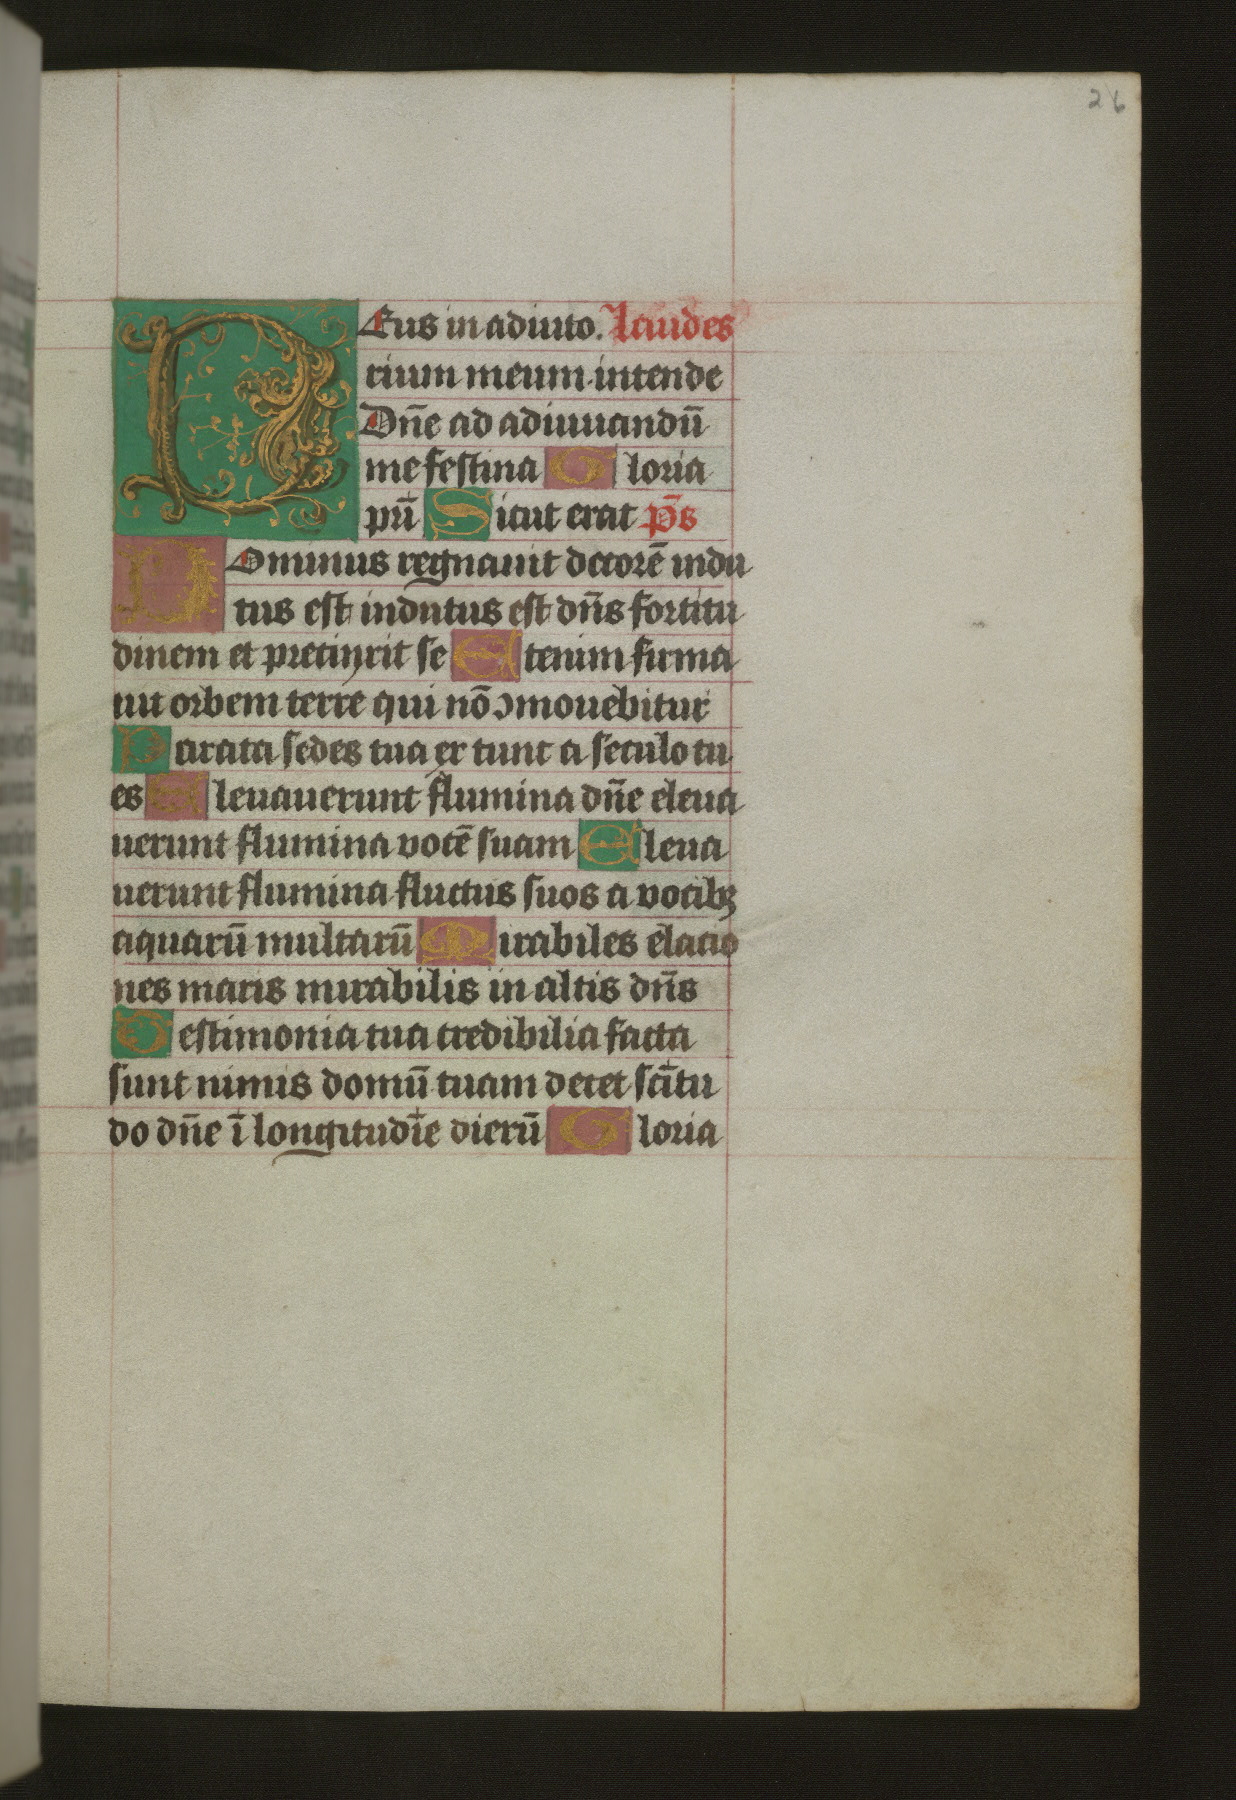 26
DEus in adiuto. Laudes
rium meum intende
Dn̄e ad adiuuandū
me festina Gloria
pr̄i Sicut erat p̄s
Dominus regnauit decorē indu
tus est indutus est dn̄s fortitu
dinem et precinxit se Etenim firma
uit orbem terre qui nō ɔmouebitur
Parata sedes tua ex tunc a seculo tu
es Eleuauerunt flumina dn̄e eleua
uerunt flumina vocē suam Eleua
uerunt flumina fluctus suos a vocibꝫ
aquarū multarū Mirabiles elacio
nes maris mirabilis in altis dn̄s
Testimonia tua credibilia facta
sunt nimis domū tuam decet sc̄itu
do dn̄e ī longitudīe dierū Gloria